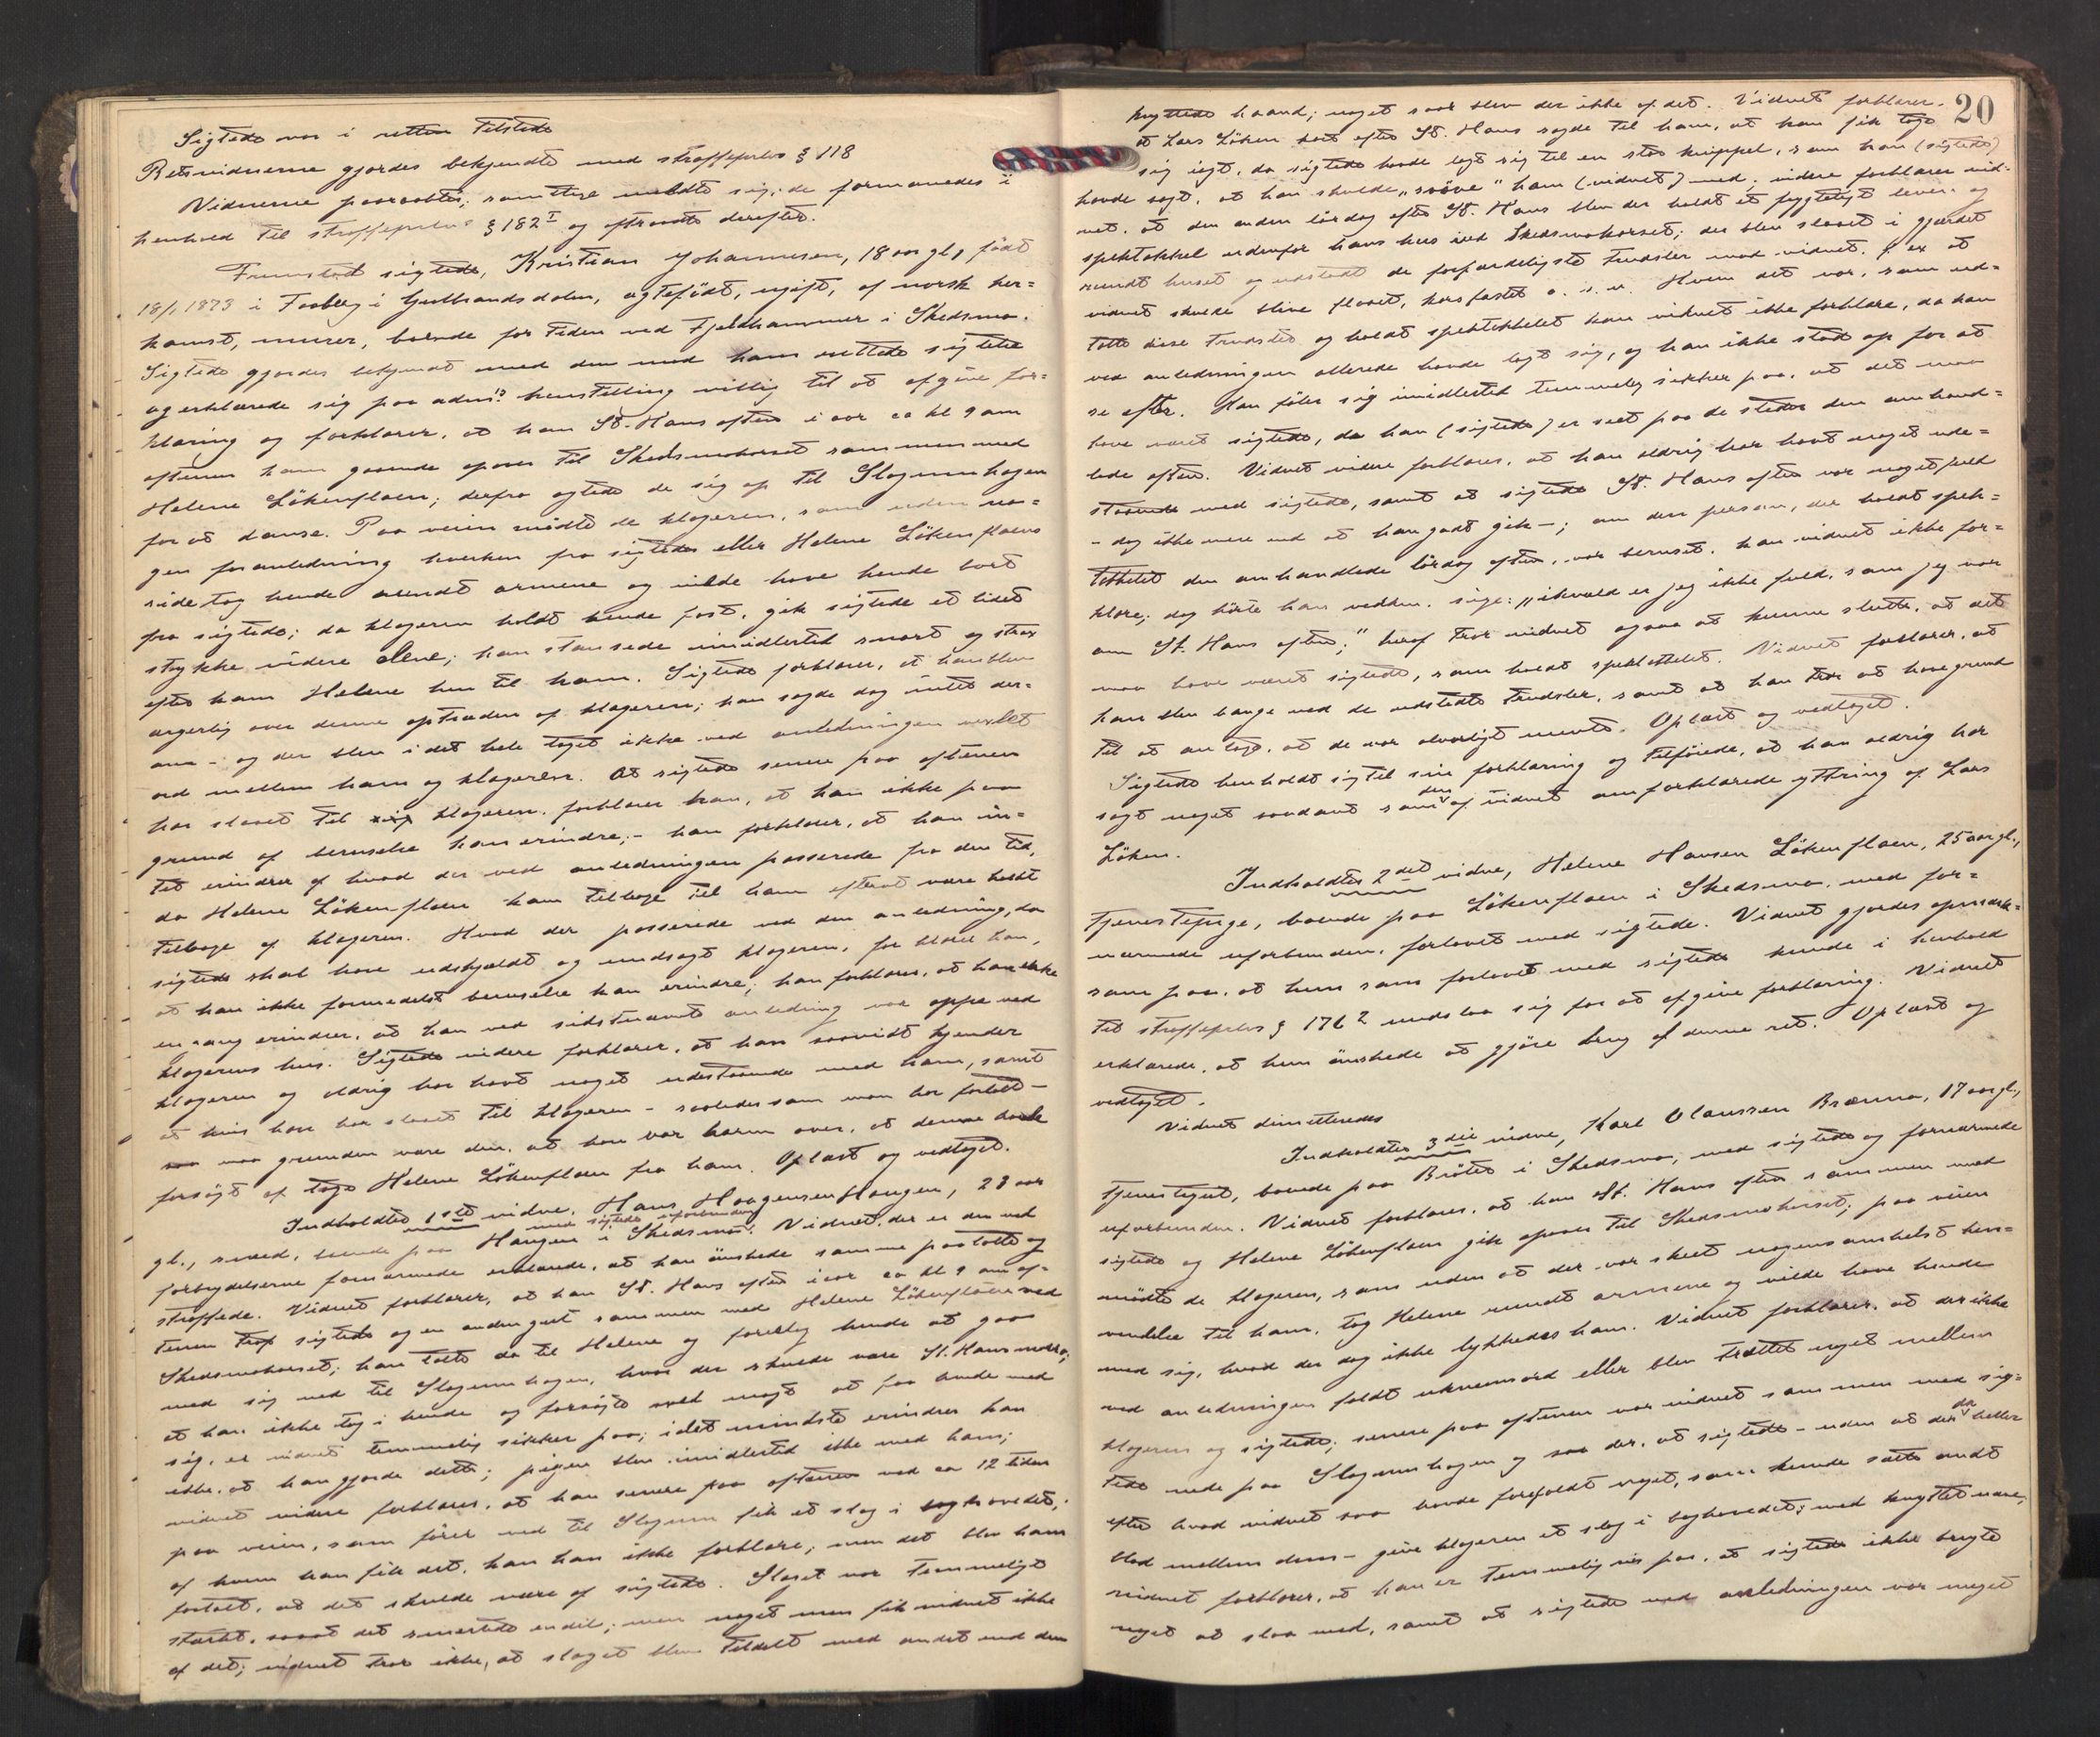 Sigtede var i retten tilstede
Retsvidnerne gjordes bekjendt med straffeprlov § 118
Vidnerne paaraabtes; samtlige meldte sig; de formanedes i
henhold til straffeprlov § 182 I og aftraadte derefter.
Fremstod sigtede, Kristian Johannesen, 18 aar gl, født
18/1 1873 i Faaberg i Gudbrandsdalen, ægtefödt, ugift, af norsk her=
komst, murer, boende for tiden ved Fjeldhammer i Skedsmo.
Sigtede gjordes bekjendt med den mod ham rettede sigtelse
og erklærede sig paa adm:s henstilling villig til at afgive for=
klaring og forklarer, at han St. Hans aften i aar ca kl 9 om
aftenen kom gaaende opover til Skedsmokorset sammen med
Helene Lökenflaen; derfra agtede de sig op til Slagnumhagen
for at danse. Paa veien mödte de klageren, som uden no=
gen foranledning hverken fra sigtedes eller Helene Lökenflaens
side tog hende rundt armene og vilde have hende bort
fra sigtede; da klageren holdt hende fast, gik sigtede et lidet
stykke videre alene; han stansede imidlertid snart og strax
efter kom Helene hen til ham. Sigtede forklarer, at han blev
ærgerlig over denne optræden af klageren; han sagde dog intet der=
om - og der blev i det hele taget ikke ved anledningen vexlet
ord mellem ham og klageren. At sigtede senere paa aftenen
har slaaet til klageren, forklarer han, at han ikke paa
grund af beruselse kan erindre; - han forklarer, at han in=
tet erindrer af hvad der ved anledningen passerede fra den tid,
da Helene Lökenflaen kom tilbage til ham efterat være holdt
tilbage af klageren. Hvad der passerede ved den anledning, da
sigtede skal have udskjældt og undsagt klageren, forklarer han,
at han ikke formedelst beruselse kan erindre; han forklarer, at han ikke
engang erindrer, at han ved sidstnævnte anledning var oppe ved
klagerens hus. Sigtede videre forklarer, at han saavidt kjender
klageren og aldrig har havt noget udestaaende med ham, samt
at hvis han har slaaet til klageren - saaledes som man har fortalt -
maa grunden være den, at han var harm over, at denne havde
forsögt at tage Helene Lökenflaen fra ham. Oplæst og vedtaget.
Indkaldtes 1ste vidne, Hans Haagensen Haugen, 28 aar
med sigtede uforbunden
gl., smed, boende paa Haugen i Skedsmo. Vidnet, der er den ved
forbrydelserne fornærmede erklærede, at han önskede samme paatalte og
straffede. Vidnet forklarer, at han St. Hans aften i aar ca kl 9 om af=
tenen traf sigtede og en anden gut sammen med Helene Lökenflaen ved
Skedsmokorset; han talte da til Helene og foreslog hende at gaa
med sig ned til Slagnumhagen, hvor der skulde være St. Hansmoro;
at han ikke tog i hende og forsögte med magt at faa hende med
sig, er vidnet temmelig sikker paa; i det mindste erindrer han
ikke, at han gjorde dette; pigen blev imidlertid ikke med ham;
vidnet videre forklarer, at han senere paa aftenen ved ca 12 tiden
paa veien, som förer ned til Slagnum fik et slag i baghovedet;
af hvem han fik det, kan han ikke forklare; men det blev ham
fortalt, at det skulde være af sigtede. Slaget var temmeligt
stærkt, saaat det smertede endel; men noget men fik vidnet ikke
af det; vidnet tror ikke, at slaget blev tildelt med andet end den
20
knyttede haand; noget saar blev der ikke af det. Vidnet forklarer,
at Lars Löken bort efter St. Hans sagde til ham, at han fik tage
sig iagt, da sigtede havde lagt sig til en stor knippel, som han (sigtede)
havde sagt, at han skulde "svöve" ham (vidnet) med; videre forklarer vid=
net, at den anden lördag efter St. Hans blev der holdt et frygteligt leven og
spektakkel udenfor hans hus ved Skedsmokorset; der blev slaaet i gjærdet
rundt huset og udstödt de forfærdeligste trudsler mod vidnet, f. ex at
vidnet skulde blive flaaet, korsfæstet o. s. v. Hvem det var, som ud=
talte disse trudsler og holdt spektakkelet kan vidnet ikke forklare, da han
ved anledningen allerede havde lagt sig, og han ikke stod op for at
se efter. Han föler sig imidlertid temmelig sikker paa, at det maa
have været sigtede, da han (sigtede) er seet paa de steder den omhand=
lede aften. Vidnet videre forklarer, at han aldrig har havt noget ude=
staaende med sigtede, samt at sigtede St. Hans aften var noget fuld
- dog ikke mere end at han godt gik -; om den person, der holdt spek=
takkelet den omhandlede lördag aften, var beruset, kan vidnet ikke for=
klare; dog hörte han vedkom. sige: "ikveld er jeg ikke fuld, som jeg var
om St. Hans aften;" heraf tror vidnet ogsaa at kunne slutte, at det
maa have været sigtede, som holdt spektakkelet. Vidnet forklarer, at
han blev bange ved de udstödte trudsler, samt at han tror at have grund
til at antage, at de var alvorligt mente. Oplæst og vedtaget.
Sigtede henholdt sig til sin forklaring og tilföiede, at han aldrig har
sagt noget saadant som den af vidnet omforklarede yttring af Lars
Löken.
Indkaldtes 2det vidne, Helene Hansen Lökenflaen, 25 aar gl.,
tjenestepige, boende paa Lökenflaen i Skedsmo, med for=
nærmede uforbunden, forlovet med sigtede. Vidnet gjordes opmærk=
som paa, at hun som forlovet med sigtede kunde i henhold
til straffeprlov § 176 2 undslaa sig for at afgive forklaring. Vidnet
erklærede, at hun önskede at gjöre brug af denne ret. Oplæst og
vedtaget.
Vidnet dimitteredes
Indkaldtes 3die vidne, Karl Olaussen Brænna, 17 aar gl.,
tjenestegut, boende paa Bråtet i Skedsmo, med sigtede og fornærmede
uforbunden. Vidnet forklarer, at han St. Hans aften sammen med
sigtede og Helene Lökenflaen gik opover til Skedsmokorset; paa veien
mödte de klageren, som uden at der var skeet nogensomhelst hen=
vendelse til ham, tog Helene rundt armene og vilde have hende
med sig, hvad der dog ikke lykkedes ham. Vidnet forklarer, at der ikke
ved anledningen faldt ukvemsord eller blev trættet noget mellem
klageren og sigtede; senere paa aftenen var vidnet sammen med sig=
tede nede paa Slagnumhagen og saa der, at sigtede - uden at der da heller
efter hvad vidnet saa havde forefaldt noget, som kunde sætte ondt
blod mellem dem - give klageren et slag i baghovedet; med knyttet næve,
vidnet forklarer, at han er temmelig vis paa, at sigtede ikke brugte
noget at slaa med, samt at sigtede ved anledningen var meget